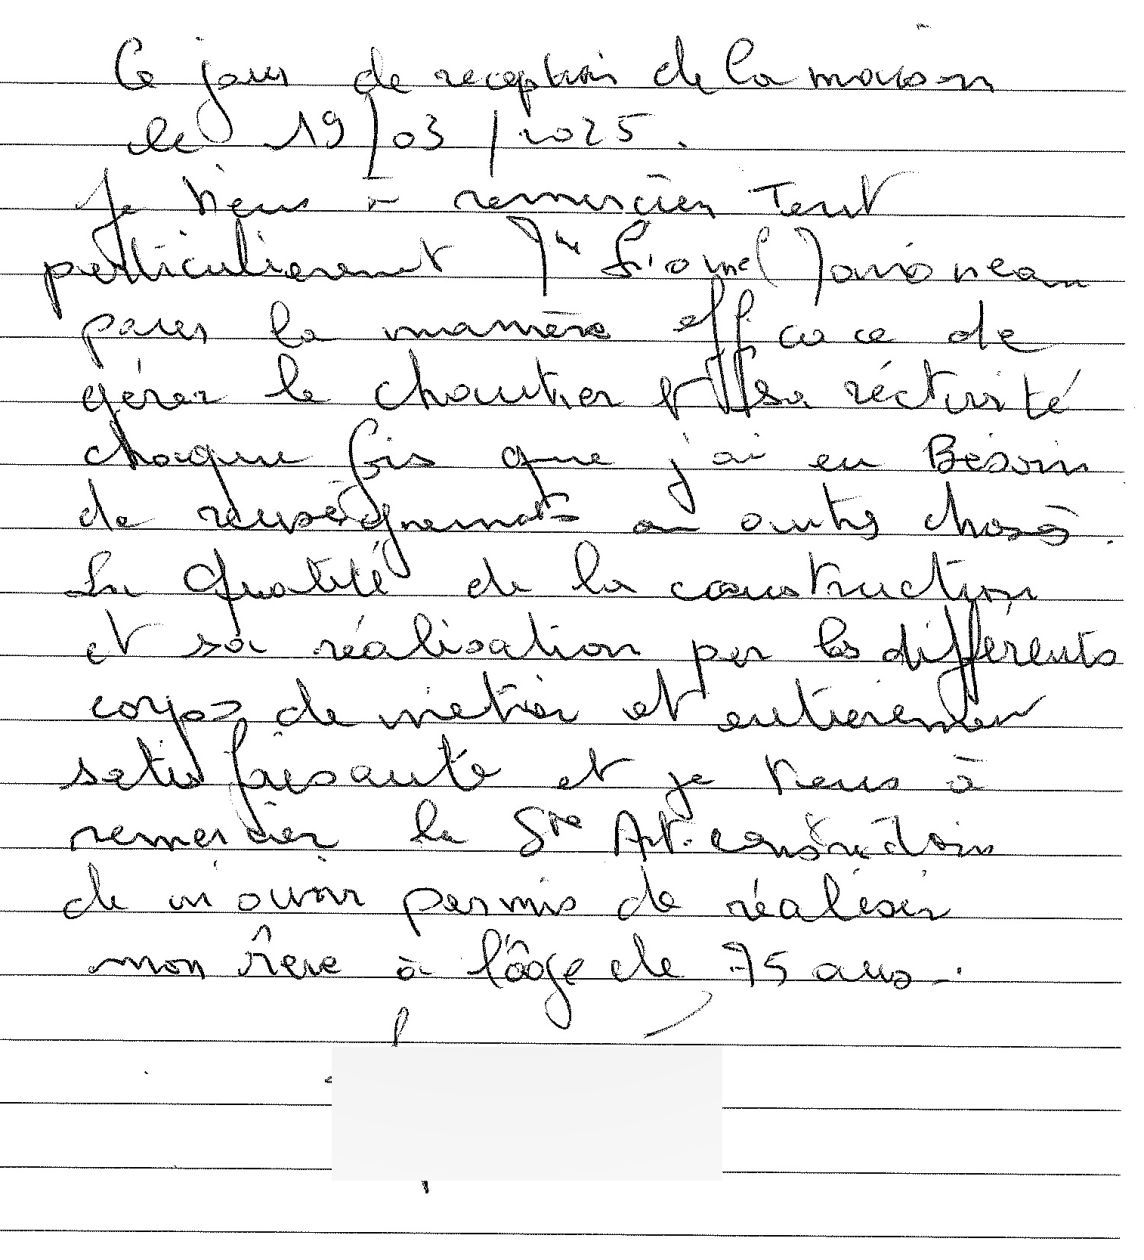 Ce jour de reception de la maison
le 19/03/2025.
Je tiens à remercier Tout
particulierement Mr Lionel Javonneau
pour la manière efficace de
gérer le chantier et sa réctivité
chaque fois que j'ai eu Besoin
de renseignements ou autres choses.
La Qualité de la construction
et sa réalisation par les différents
corps de métier et entierement
satisfaisante et je tiens à
remercier la Sté Art. construction
de m'avoir permis de réaliser
mon rêve à l'âge de 75 ans.